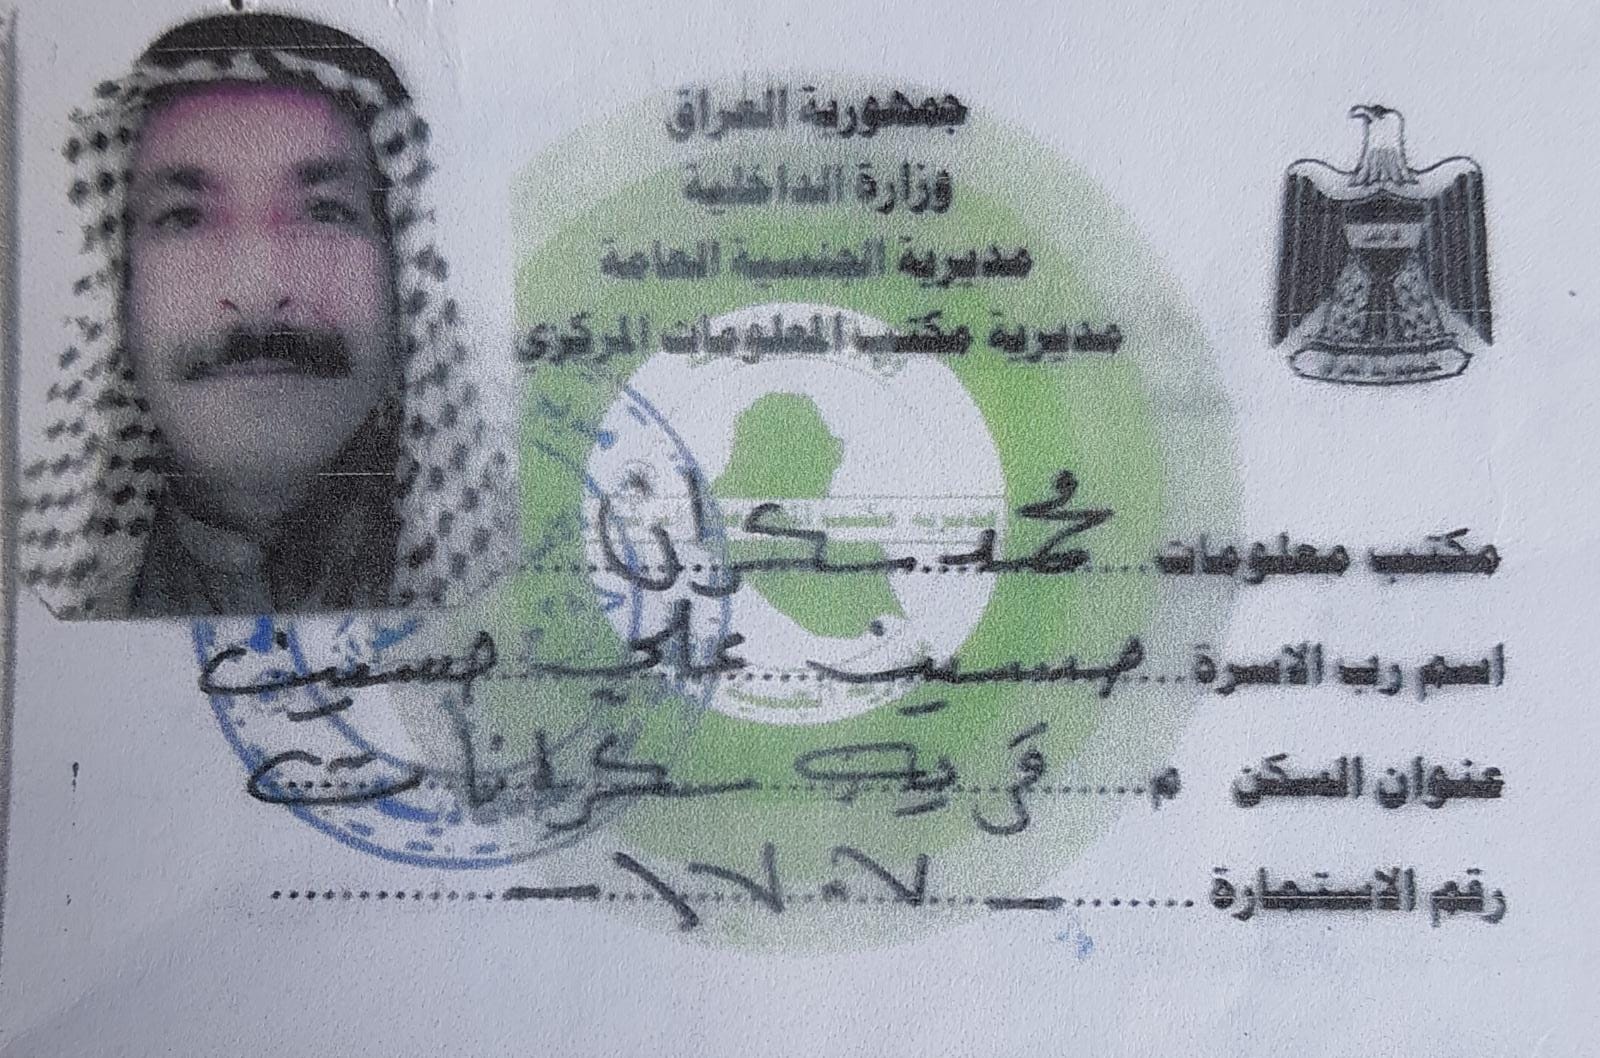 جمهورية العراق
وزارة الداخلية
مديرية الجنسية العامة
مديرية مكتب المعلومات المركزي
مكتب معلومات محمد سكران
اسم رب الاسرة حسين علي حسين
عنوان السكن م قرية سكرانات
رقم الاستمارة ١٧٠٧